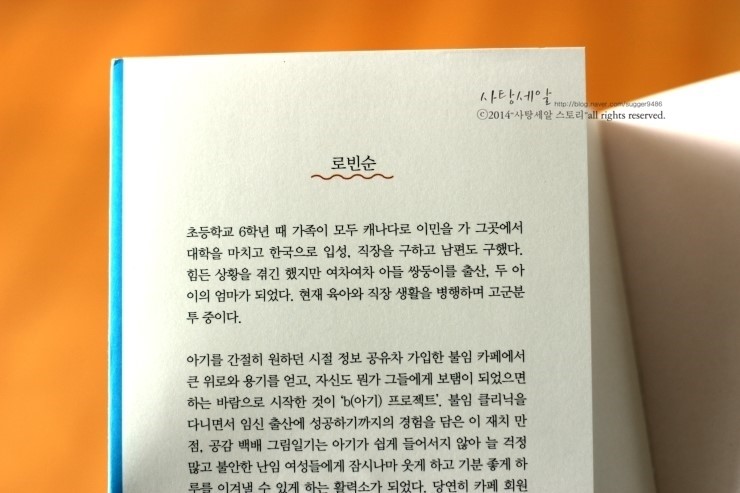 사탕세알 http://blog.naver.com/sugger9486
ⓒ2014"사탕세알 스토리"all rights reserved.
로빈순
초등학교 6학년 때 가족이 모두 캐나다로 이민을 가 그곳에서
대학을 마치고 한국으로 입성, 직장을 구하고 남편도 구했다.
힘든 상황을 겪긴 했지만 여차여차 아들 쌍둥이를 출산, 두 아
이의 엄마가 되었다. 현재 육아와 직장 생활을 병행하며 고군분
투 중이다.
아기를 간절히 원하던 시절 정보 공유차 가입한 불임 카페에서
큰 위로와 용기를 얻고, 자신도 뭔가 그들에게 보탬이 되었으면
하는 바람으로 시작한 것이 'b(아기) 프로젝트'. 불임 클리닉을
다니면서 임신 출산에 성공하기까지의 경험을 담은 이 재치 만
점, 공감 백배 그림일기는 아기가 쉽게 들어서지 않아 늘 걱정
많고 불안한 난임 여성들에게 잠시나마 웃게 하고 기분 좋게 하
루를 이겨낼 수 있게 하는 활력소가 되었다. 당연히 카페 회원